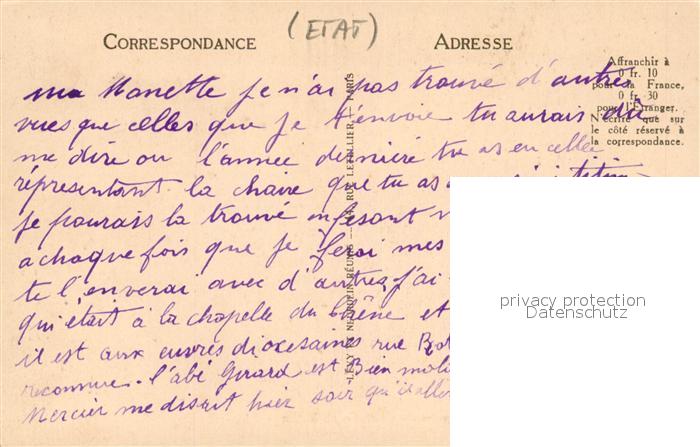 (ETAT)
CORRESPONDANCE
ADRESSE
Affranchir à
0 fr. 10
pour la France,
0 fr. 30
pour l'Étranger.
N'écrire que sur
le côté réservé à
la correspondance.
ma Nanette je n'ai pas trouvé d'autres
vues que celles que je t'envoie tu aurais dû
me dire ou l'année dernière tu as eu celle
réprésentant la chaire que tu as
je pourais la trouvé en fesant
a chaque fois que je ferai mes
te l'enverai avec d'autres, j'ai
qui était à la chapelle du chêne et
il est aux euvres diocesaines rue
reconnue. l'abé Girard est Bien
Mercier me disait hier soir qu'il
LÉVY ET NEURDEIN RÉUNIS RUE LETELLIER, PARIS
privacy protection
Datenschutz